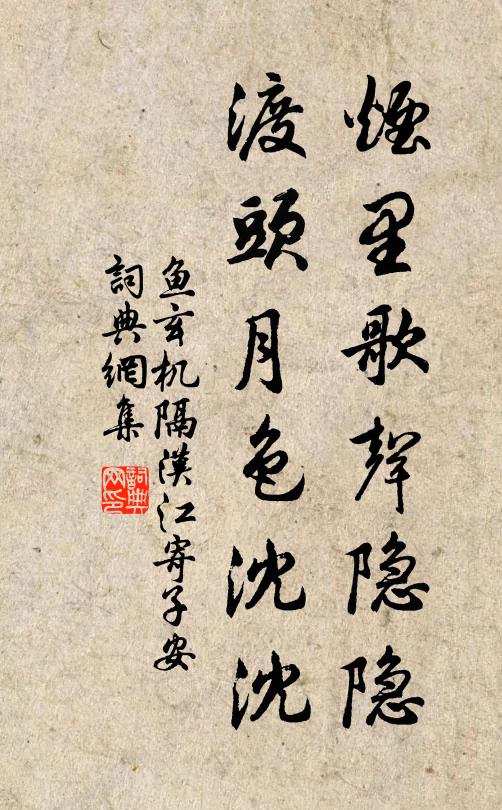 煙里歌聲隐隐
渡頭月色沈沈
鱼玄机隔漢江寄子安
詞典網集
詞典網印